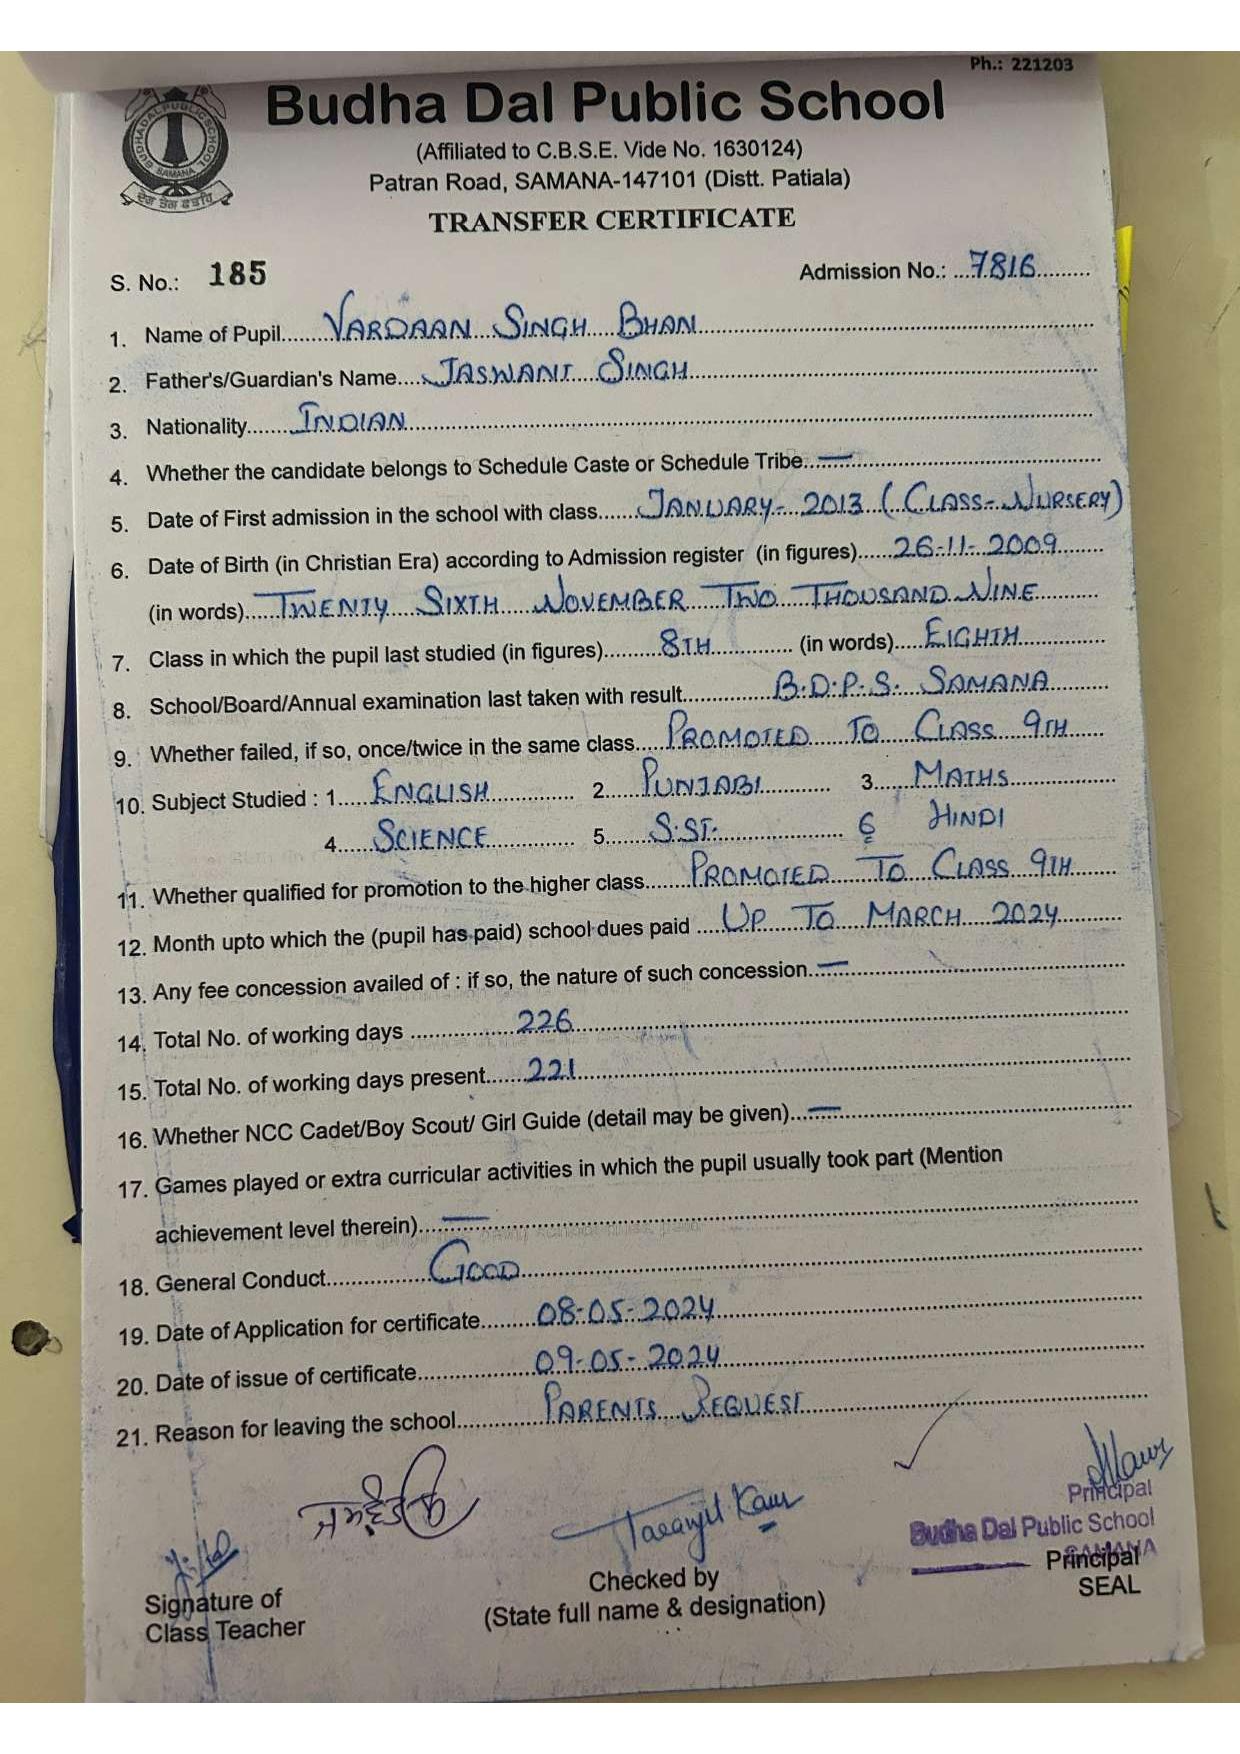 Ph.: 221203
BUDHA DAL PUBLIC SCHOOL
SAMANA
ਦੇਗ ਤੇਗ ਫਤਹਿ
Budha Dal Public School
(Affiliated to C.B.S.E. Vide No. 1630124)
Patran Road, SAMANA-147101 (Distt. Patiala)
TRANSFER CERTIFICATE
S. No.: 185 Admission No.: 7816
1. Name of Pupil VARDAAN SINGH BHAN
2. Father's/Guardian's Name JASWANT SINGH
3. Nationality INDIAN
4. Whether the candidate belongs to Schedule Caste or Schedule Tribe —
5. Date of First admission in the school with class JANUARY- 2013 (CLASS-NURSERY)
6. Date of Birth (in Christian Era) according to Admission register (in figures) 26-11-2009
(in words) TWENTY SIXTH NOVEMBER TWO THOUSAND NINE
7. Class in which the pupil last studied (in figures) 8TH (in words) EIGHTH
8. School/Board/Annual examination last taken with result B.D.P.S. SAMANA
9. Whether failed, if so, once/twice in the same class PROMOTED TO CLASS 9TH
10. Subject Studied : 1. ENGLISH 2. PUNJABI 3. MATHS
4. SCIENCE 5. S.ST. & HINDI
11. Whether qualified for promotion to the higher class PROMOTED TO CLASS 9TH
12. Month upto which the (pupil has paid) school dues paid UP TO MARCH 2024
13. Any fee concession availed of : if so, the nature of such concession —
14. Total No. of working days 226
15. Total No. of working days present 221
16. Whether NCC Cadet/Boy Scout/ Girl Guide (detail may be given) —
17. Games played or extra curricular activities in which the pupil usually took part (Mention
achievement level therein) —
18. General Conduct GOOD
19. Date of Application for certificate 08-05-2024
20. Date of issue of certificate 09-05-2024
21. Reason for leaving the school PARENTS REQUEST
Taranjit Kaur
Principal
Budha Dal Public School
SAMANA
Signature of
Class Teacher
Checked by
(State full name & designation)
Principal
SEAL